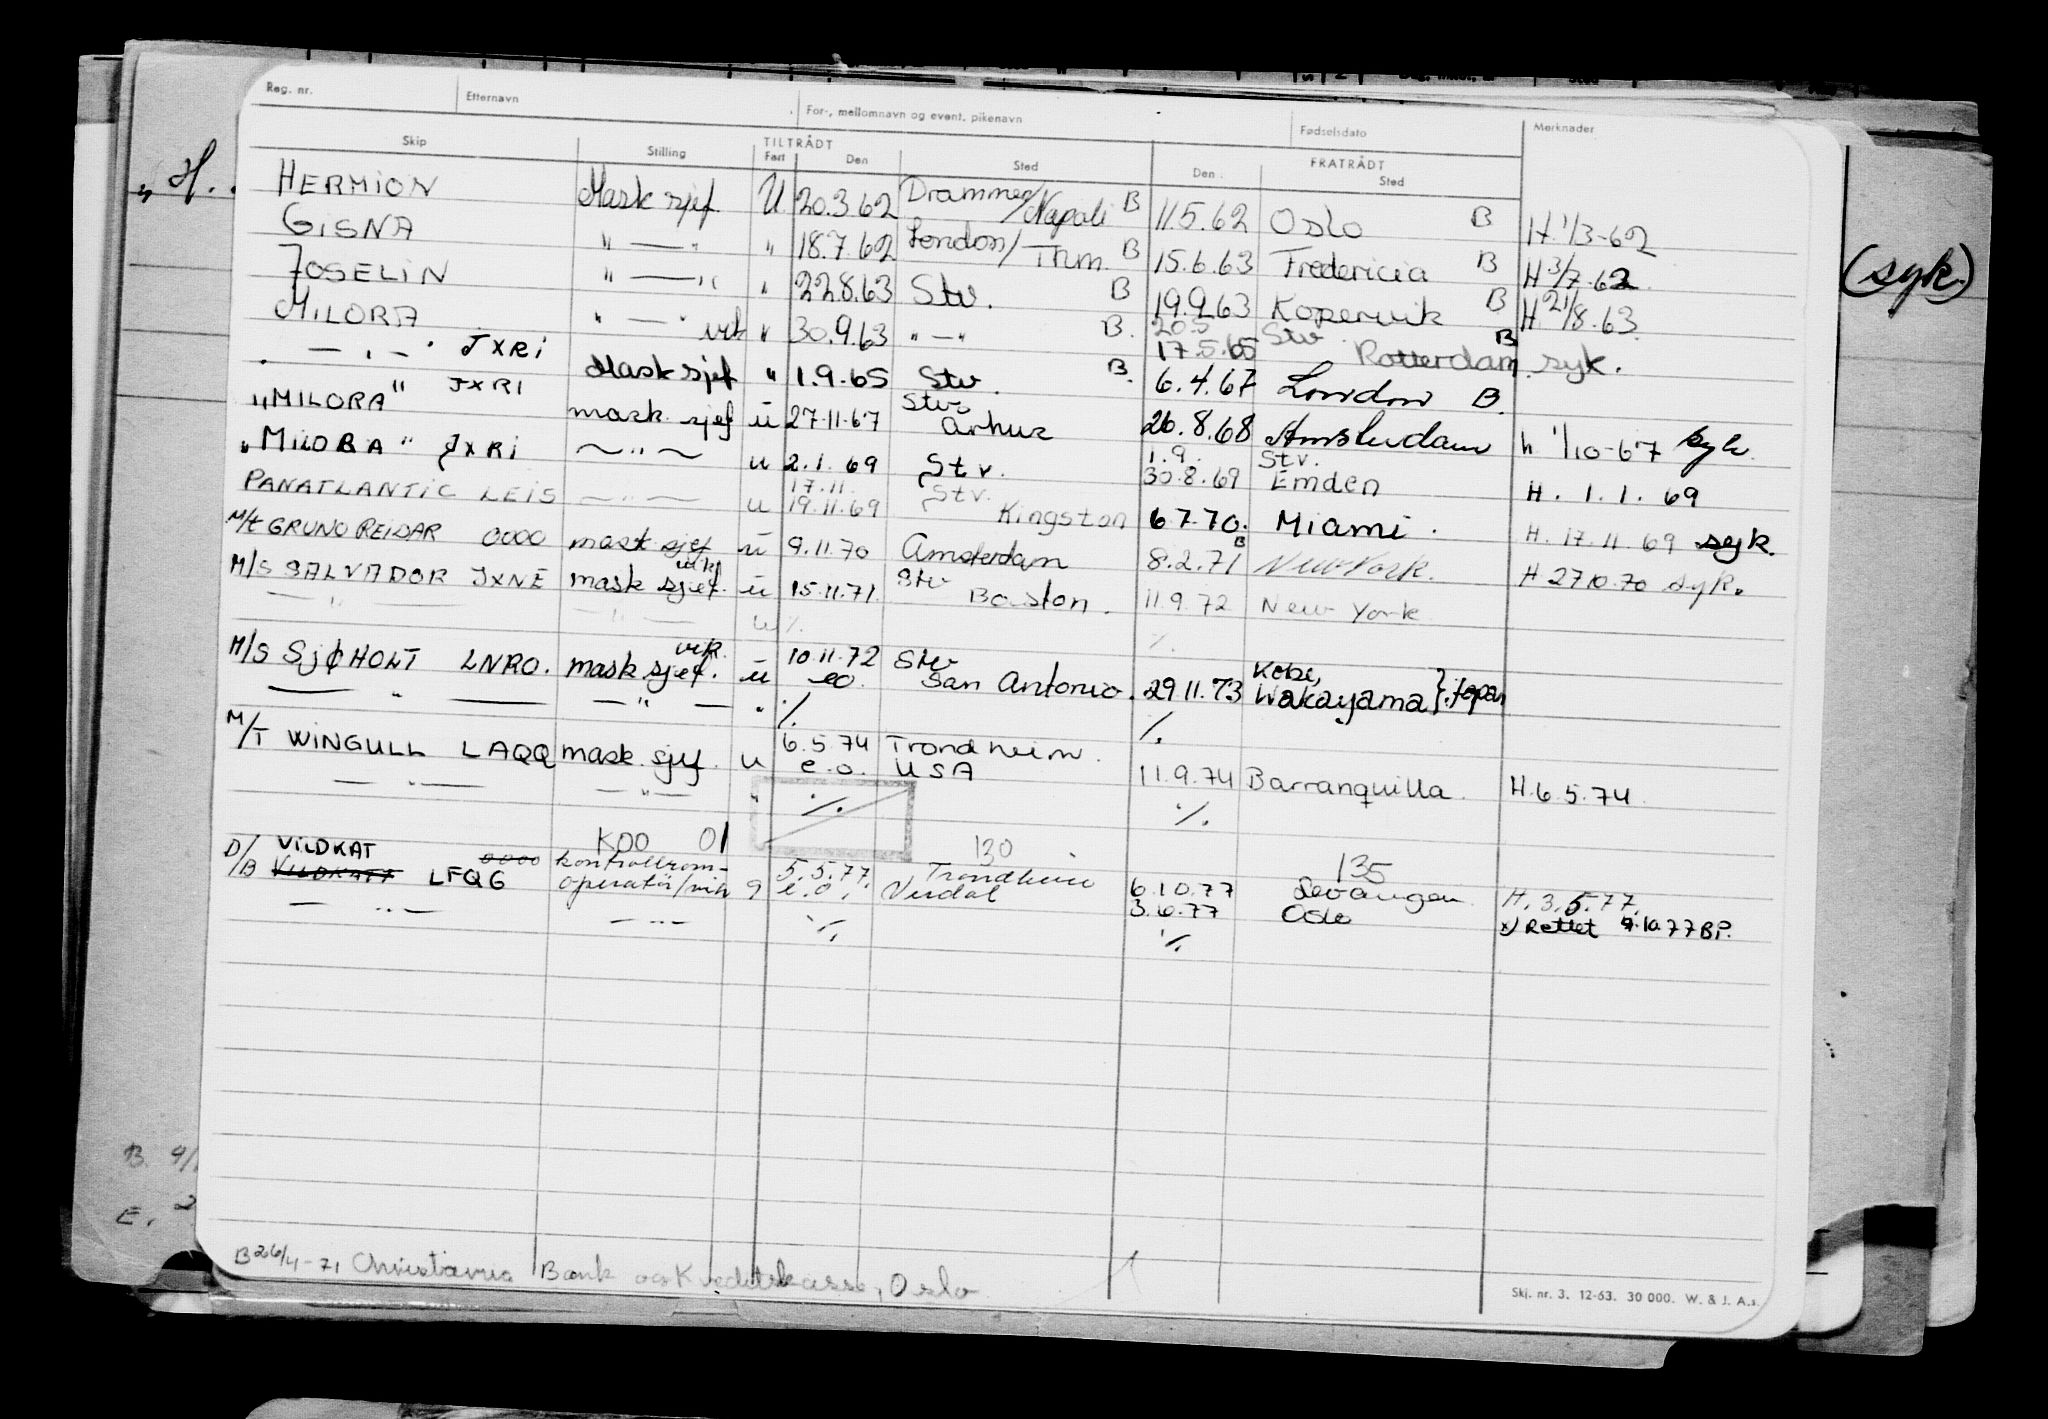 Reg. nr. Etternavn For-, mellomnavn og event. pikenavn Fødselsdato Merknader
TILTRÅDT FRATRÅDT
Skip Stilling Fart Den Sted Den Sted
HERMION Mask sjef U 20.3 62 Drammen/Napoli B 11.5.62 Oslo B H. 1/3-62
GISNA " — " " 18.7.62 London/Thm. B 15.6.63 Fredericia B H 3/7.62
JOSELIN " — " " 22.8.63 Stv. B 19.9.63 Kopervik B H. 21/8.63.
MILORA " — " vik " 30.9.63 " — " B. 20.5 Stv B
— " — JXRI 17.5.65 Rotterdam syk.
Mask sjef " 1.9.65 Stv. B. 6.4.67 London B.
"MILORA" JXRI mask. sjef u 27.11.67 Stv. Arhus 26.8.68 Amsterdam h 1/10-67 syk.
"MILORA" JXRI ~ " ~ u 2.1.69 Stv. 1.9. Stv. 30.8.69 Emden H. 1.1.69
PANATLANTIC LEIS — " — u 17.11. 19.11.69 Stv. Kingston 6.7.70. Miami. H. 17.11.69 syk.
M/t GRUNO REIDAR 0000 mask sjef u 9.11.70 Amsterdam 8.2.71 B New York. H 27.10.70 syk.
M/S SALVADOR JXNE mask sjef. vik u 15.11.71. Stv Boston. 11.9.72 New York
— " — — " — u %. %.
M/S SJØHOLT LNRO. mask sjef. vik. u 10.11.72 eo. Stv San Antonio. 29.11.73 Kobe, Wakayama } Japan
— " — — " — " %. %.
M/T WINGULL LAQQ mask. sjef. u 6.5.74 e.o. Trondheim. USA 11.9.74 Barranquilla. H. 6.5.74.
— " — — " — " %. %.
K00 01 130 135
D/B VILDKAT 0000 LFQG kontrollrom-
operatør/vik 9 5.5.77. e.o. Trondheim Verdal 6.10.77 Levanger. H. 3.5.77.
3.6.77 Oslo x) Rettet 9.10.77 BP.
— " — — " — %. %.
B 26/4-71 Christiania Bank og Kreditkasse, Oslo
Skj. nr. 3. 12-63. 30 000. W. & J. A.s.
„ H. .
(syk.)
B. 4/
E. 2